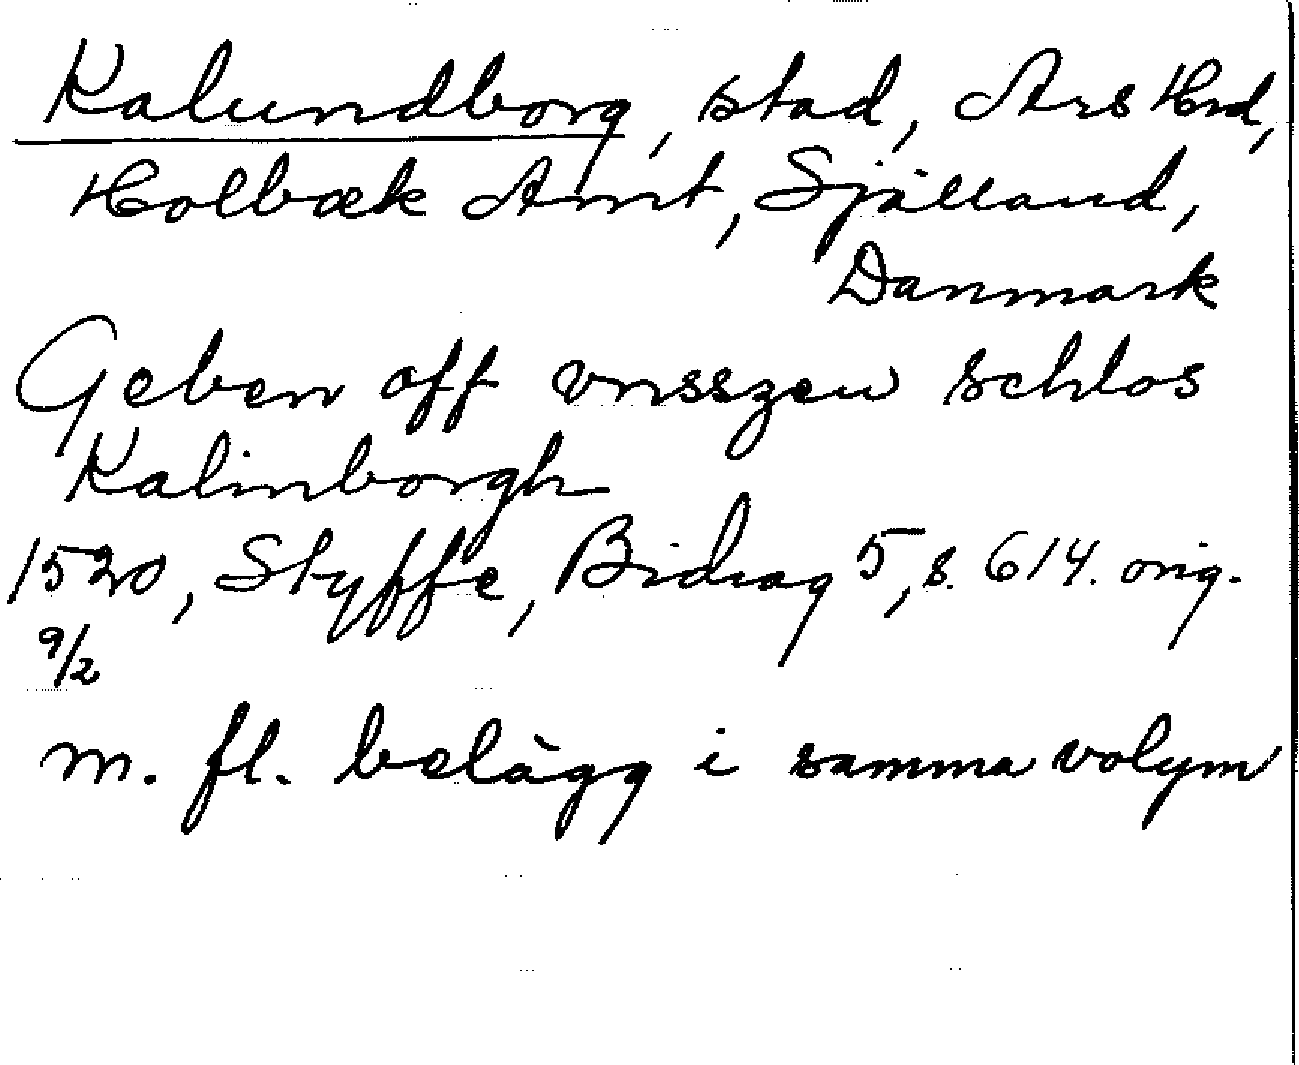 Kalundborg, stad, Ars Hrd,
Holbæk Amt, Själland,
Danmark
Geben off vnsszeu schlos
Kalinborgh
1520, Styffe, Bidrag 5, s. 614. orig.
9/2
m. fl. belägg i samma volym